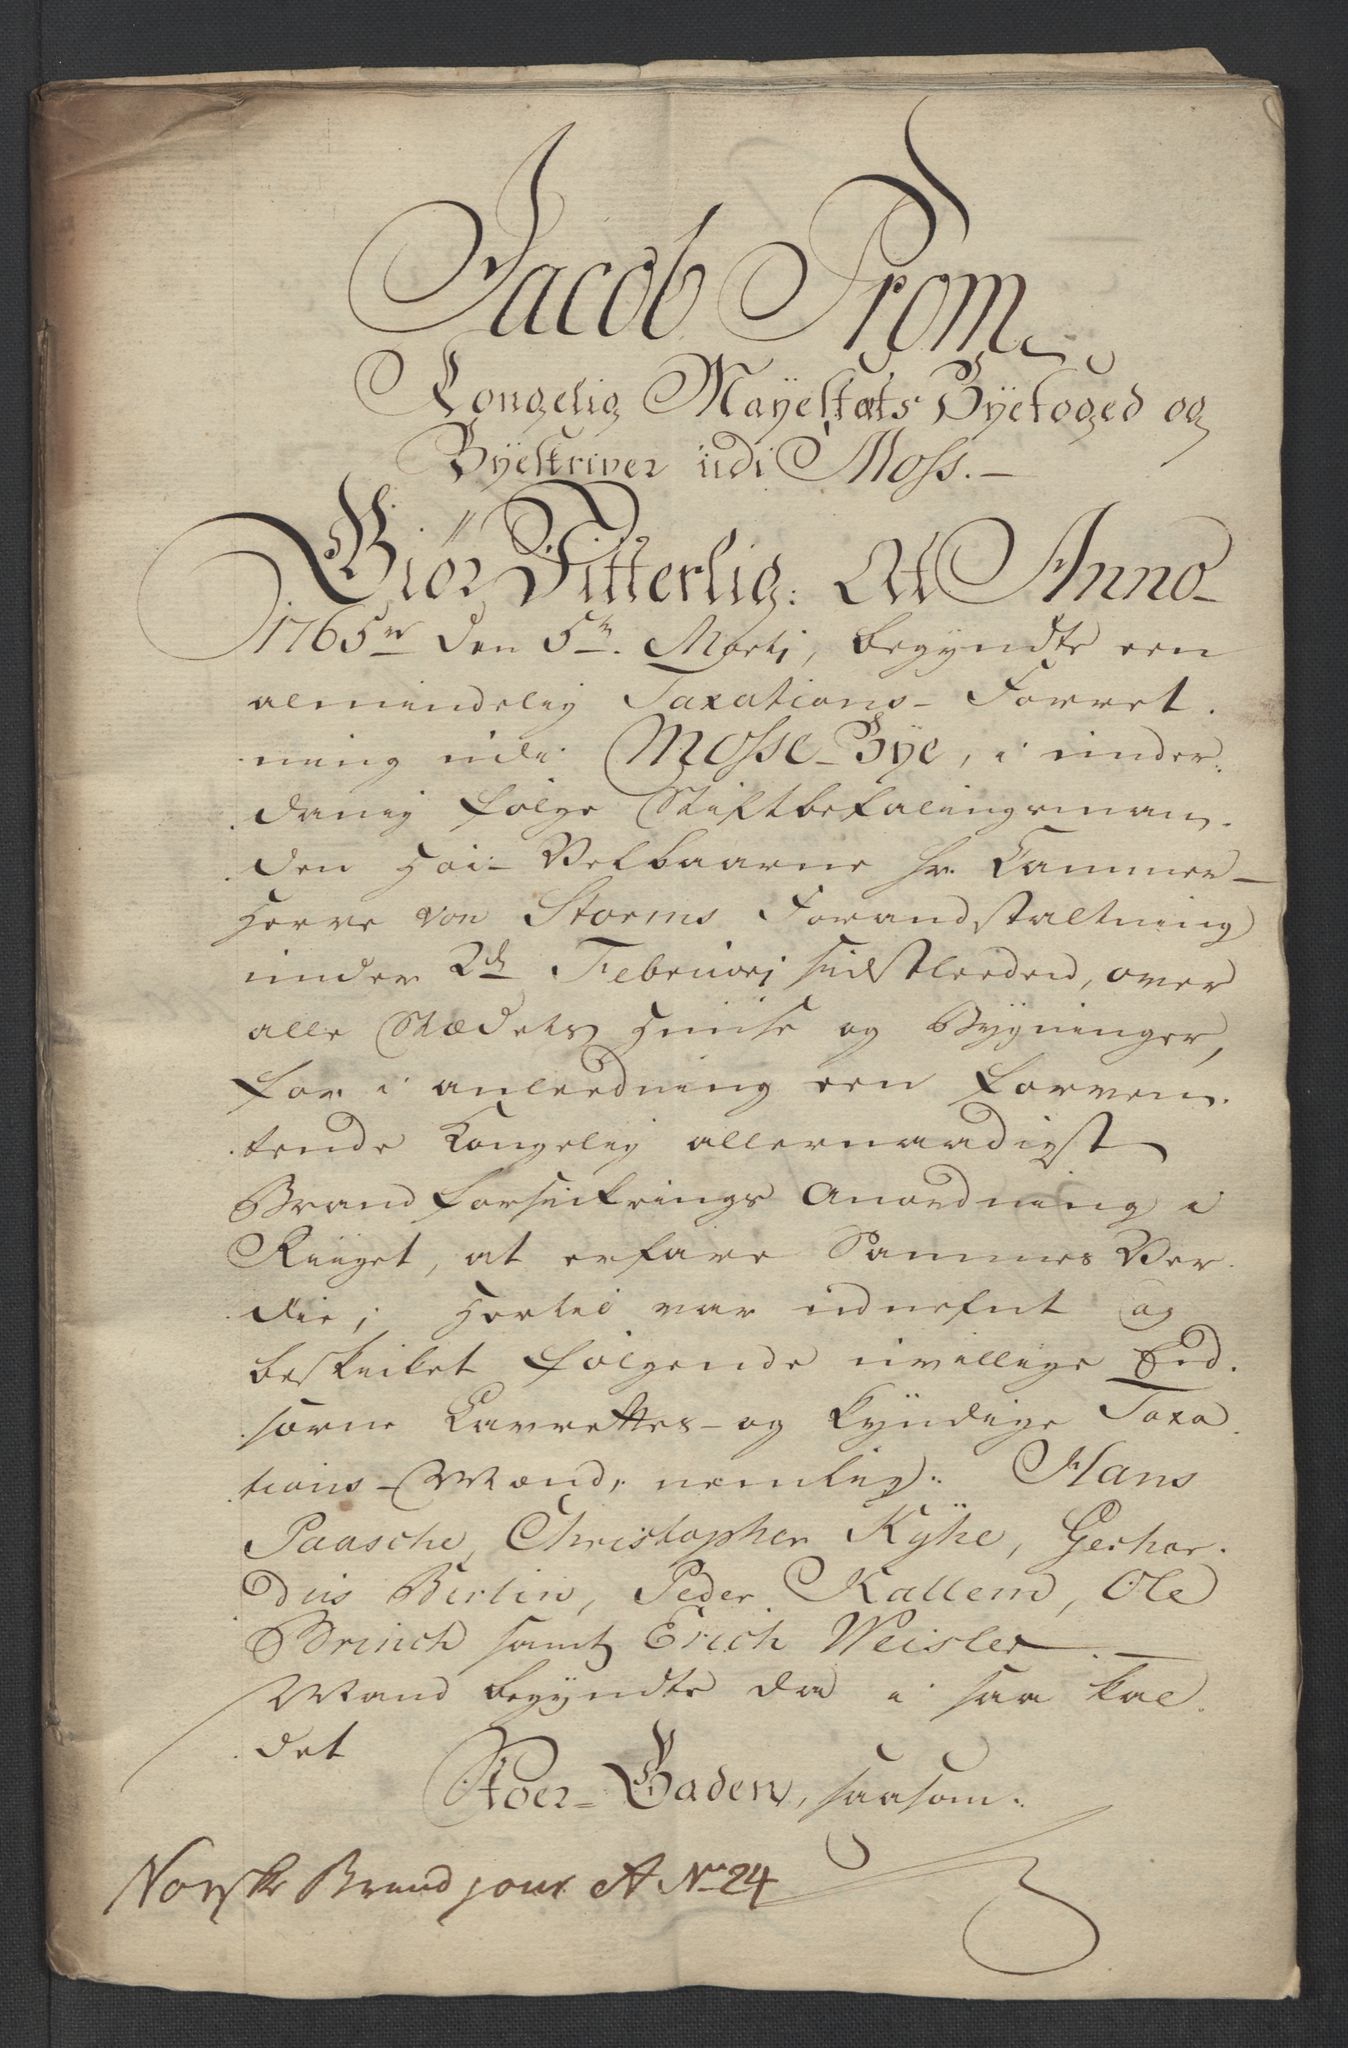 Jacob Prom
Kongelig Mayestæts Byefoged og
Byeskriver udi Moss.
Giör Vitterlig: At Anno
1765ve den 5te Martj, begyndte een
almindelig Taxations-Forret-
ning udi Mosse-Bye, i under-
danig fölge Stiftbefalingsman-
den Höi-Velbaarne Hr. Cammer-
Herre von Storms Forandstaltning
under 2den Februarj sidstleeden, over
alle Stædets Huuse og Bygninger,
for i anleedning een forven-
tende Kongelig allernaadigst
Brandforsickrings Anordning i
Riiget, at erfare Sammes Ver-
die; Hertil var udnefnt og
beskicket fölgende uvillige Eed-
sorne Laurettes- og kyndige Taxa-
tions-Mænd, nemlig: Hans
Paasche, Christopher Kÿhe, Gerhar-
dus Berlin, Peder Kallem, Ole
Brinch samt Erich Weisler.
Mand begyndte da i saa kal-
det
Stoer-Gaden, saasom:
Norske Brand jour A No 24